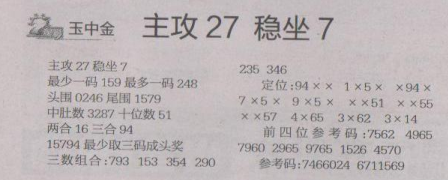 玉中金
主攻27 稳坐7
主攻27稳坐7
最少一码159最多一码248
头围0246尾围1579
中肚数3287十位数51
两合16三合94
15794最少取三码成头奖
三数组合:793 153 354 290
235 346
定位:94×× 1×5× ×94×
7×5× 9×5× ××51 ××55
××57 4×65 3×62 3×14
前四位参考码:7562 4965
7960 2965 9765 1526 4570
参考码:7466024 6711569